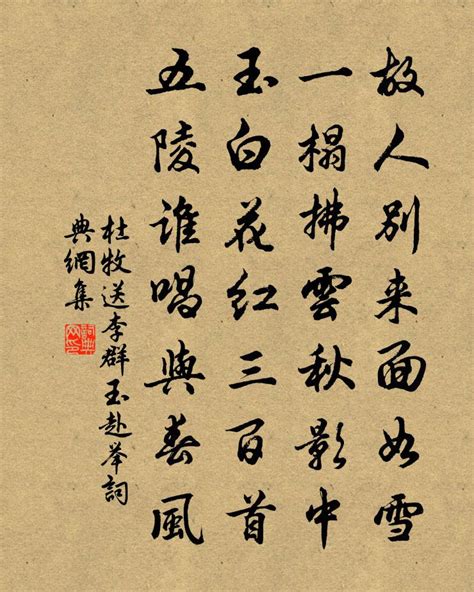 故人别来面如雪
一榻拂雲秋影中
玉白花红三百首
五陵谁唱與春風
杜牧送李群玉赴举詞
典網集